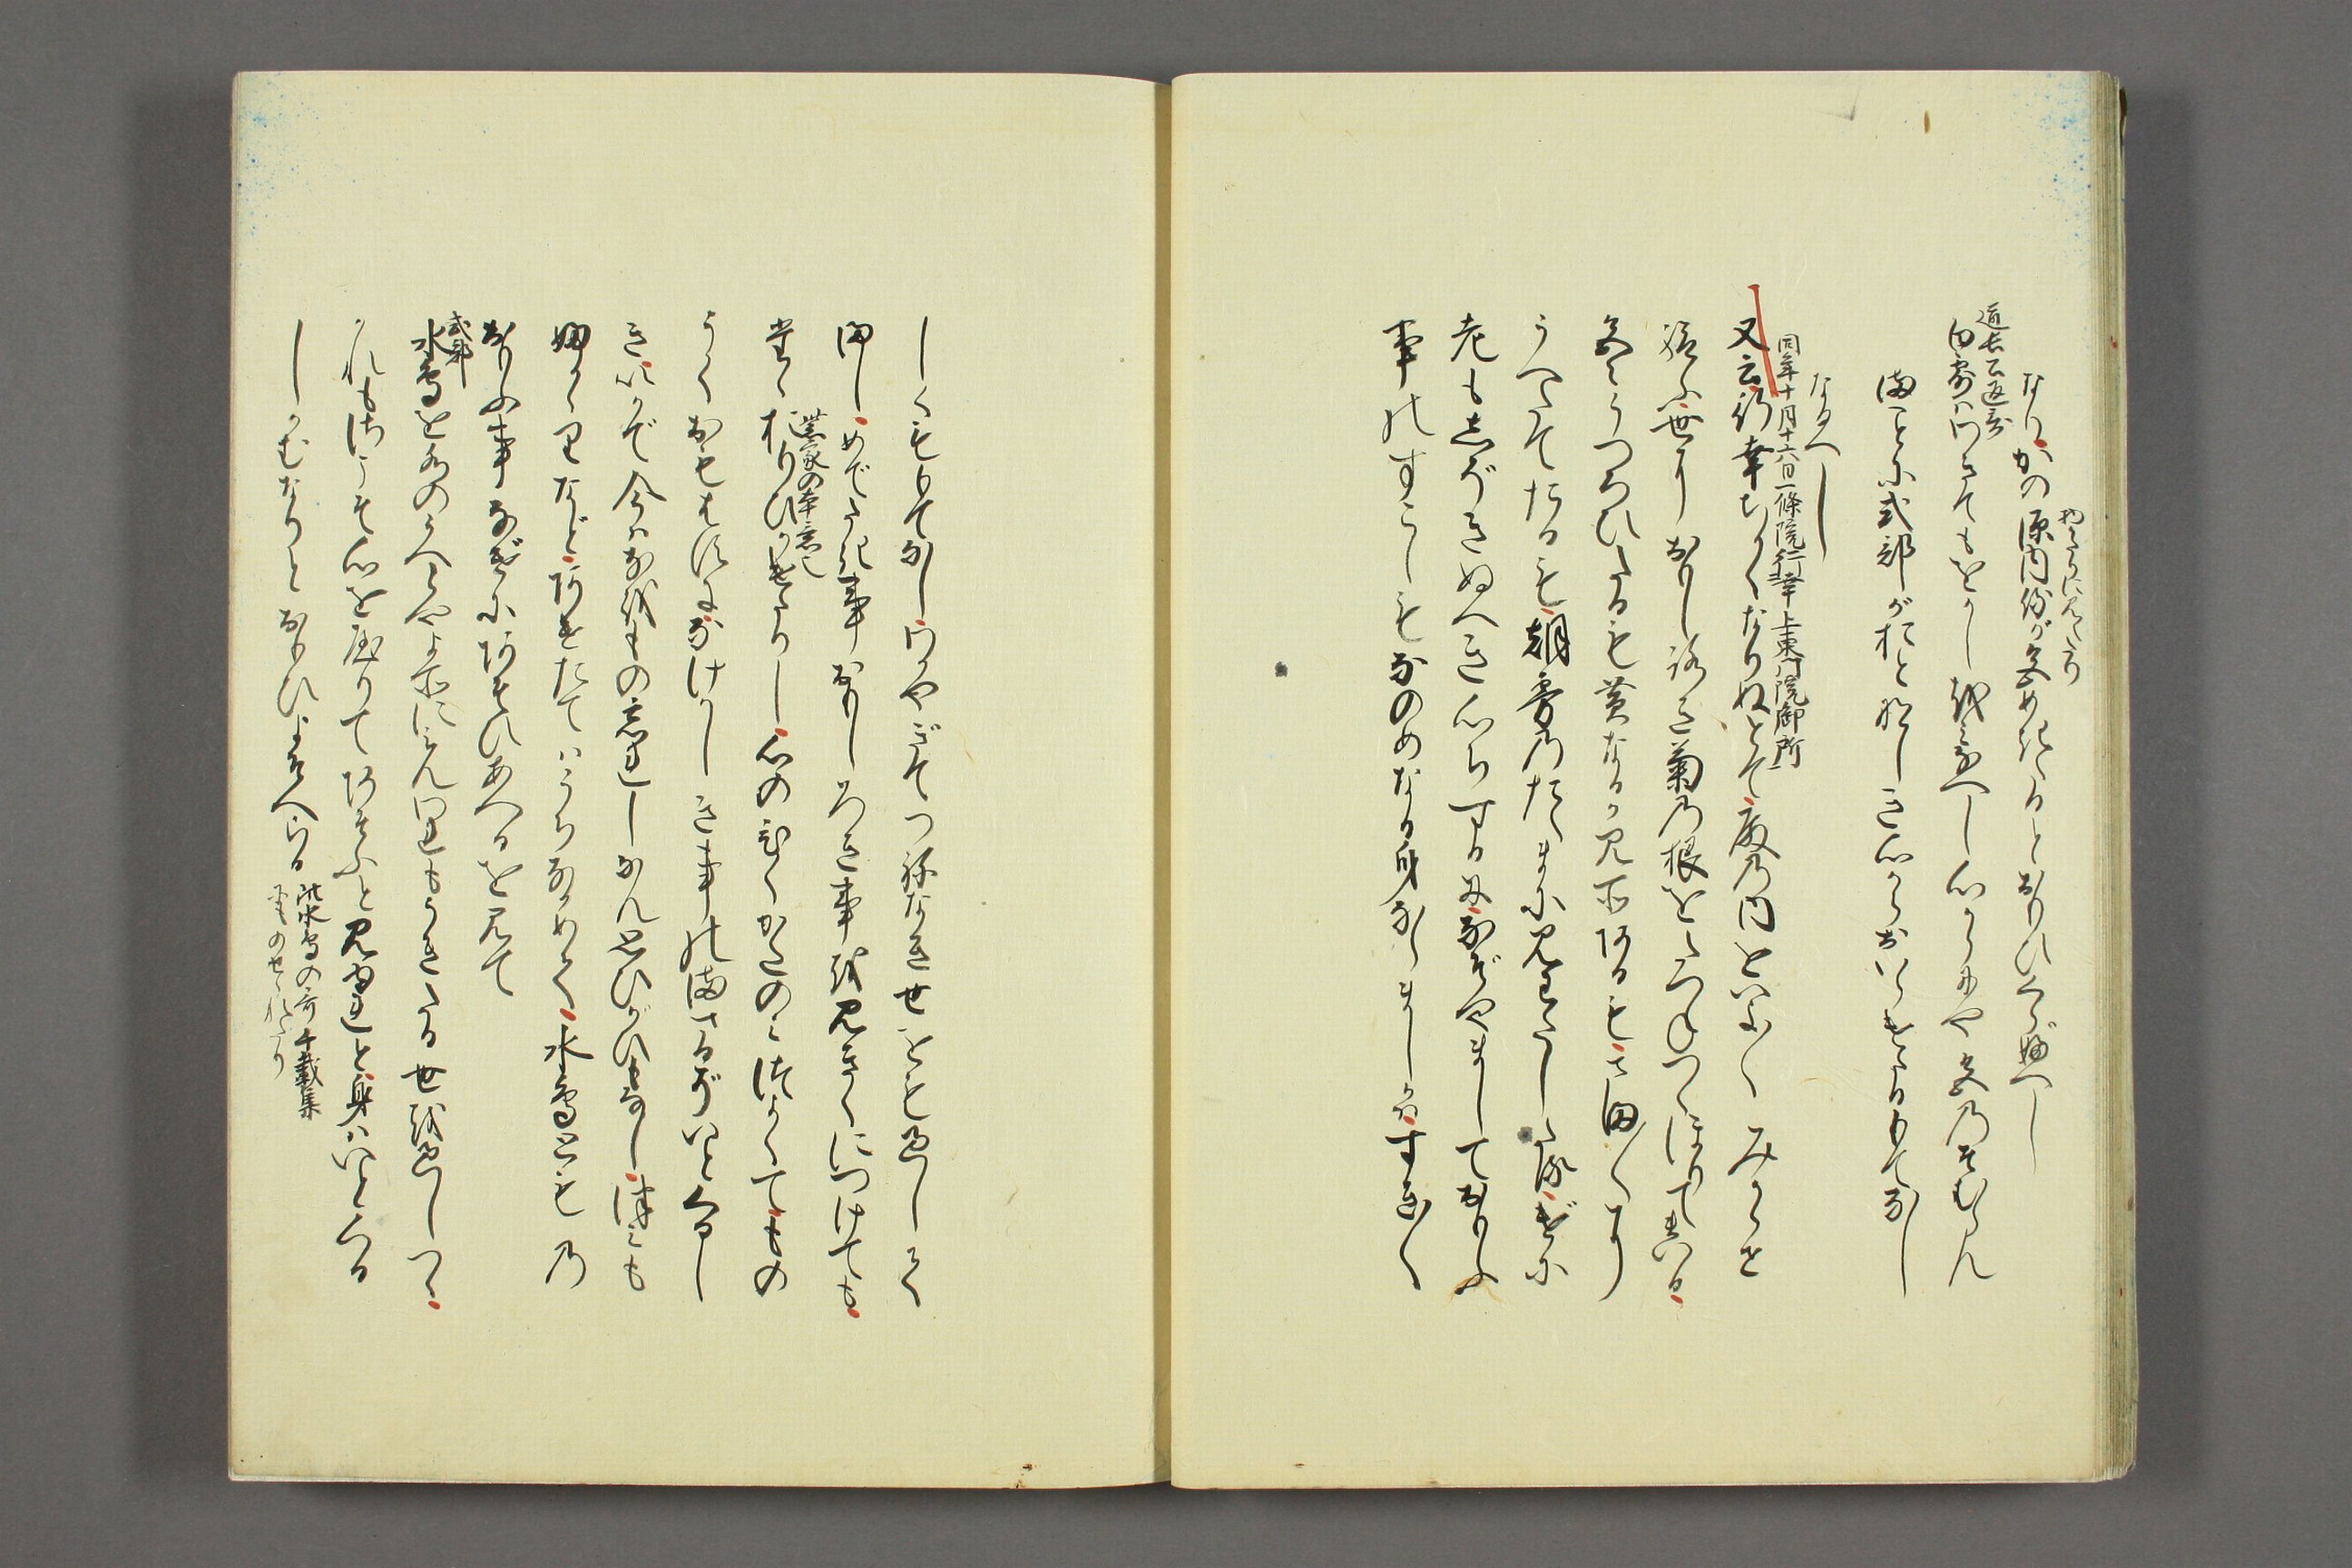 なりかの源内侍が色めけるとおもひくらぶべし
見えたり
道長公返哥
白露はわきてもをかし女郎へし心からにや色のそむらん
まことに式部がおとなしき心からおいらけたるもてなし
なるへし
同年十月十六日一條院行幸上東門院御所
又云行幸ちかくなりぬとて殿の内をいよ〳〵みかゝせ
給ふ世におもしろき菊の根をたつねつゝほりてまいる
色々うつろひたるも黄なるか見所あるもさま〳〵に
うへたてたるも朝霧のたえまに見わたしたるはげに
老もしぞきぬへき心ちするになぞやましておもふ
事のすこしもなのめなる身ならましかはすき〳〵
しくももてなしわかやぎてつねなき世をも過して
まし めでたき事おもしろき事を見きくにつけても
たゝおもひかけたりし心のひくかたのみつよくてもの
紫家の本意也
うくおもはすになけかしき事のまさるがいとくるし
きいかで今はなをもの忘れしなん思ひがひもなしつみも
ふかゝりなどあけたてはうちなかめて水鳥どもの
おもふ事なげにあそひあへるを見て
式部
水鳥を水のうへとやよそに見ん我もうきたる世を過しつゝ
かれもさこそ心をやりてあそふと見ゆれと身はいとくる
しかむなりとおもひよそへらる
此水鳥の哥千載集
にものせられたり